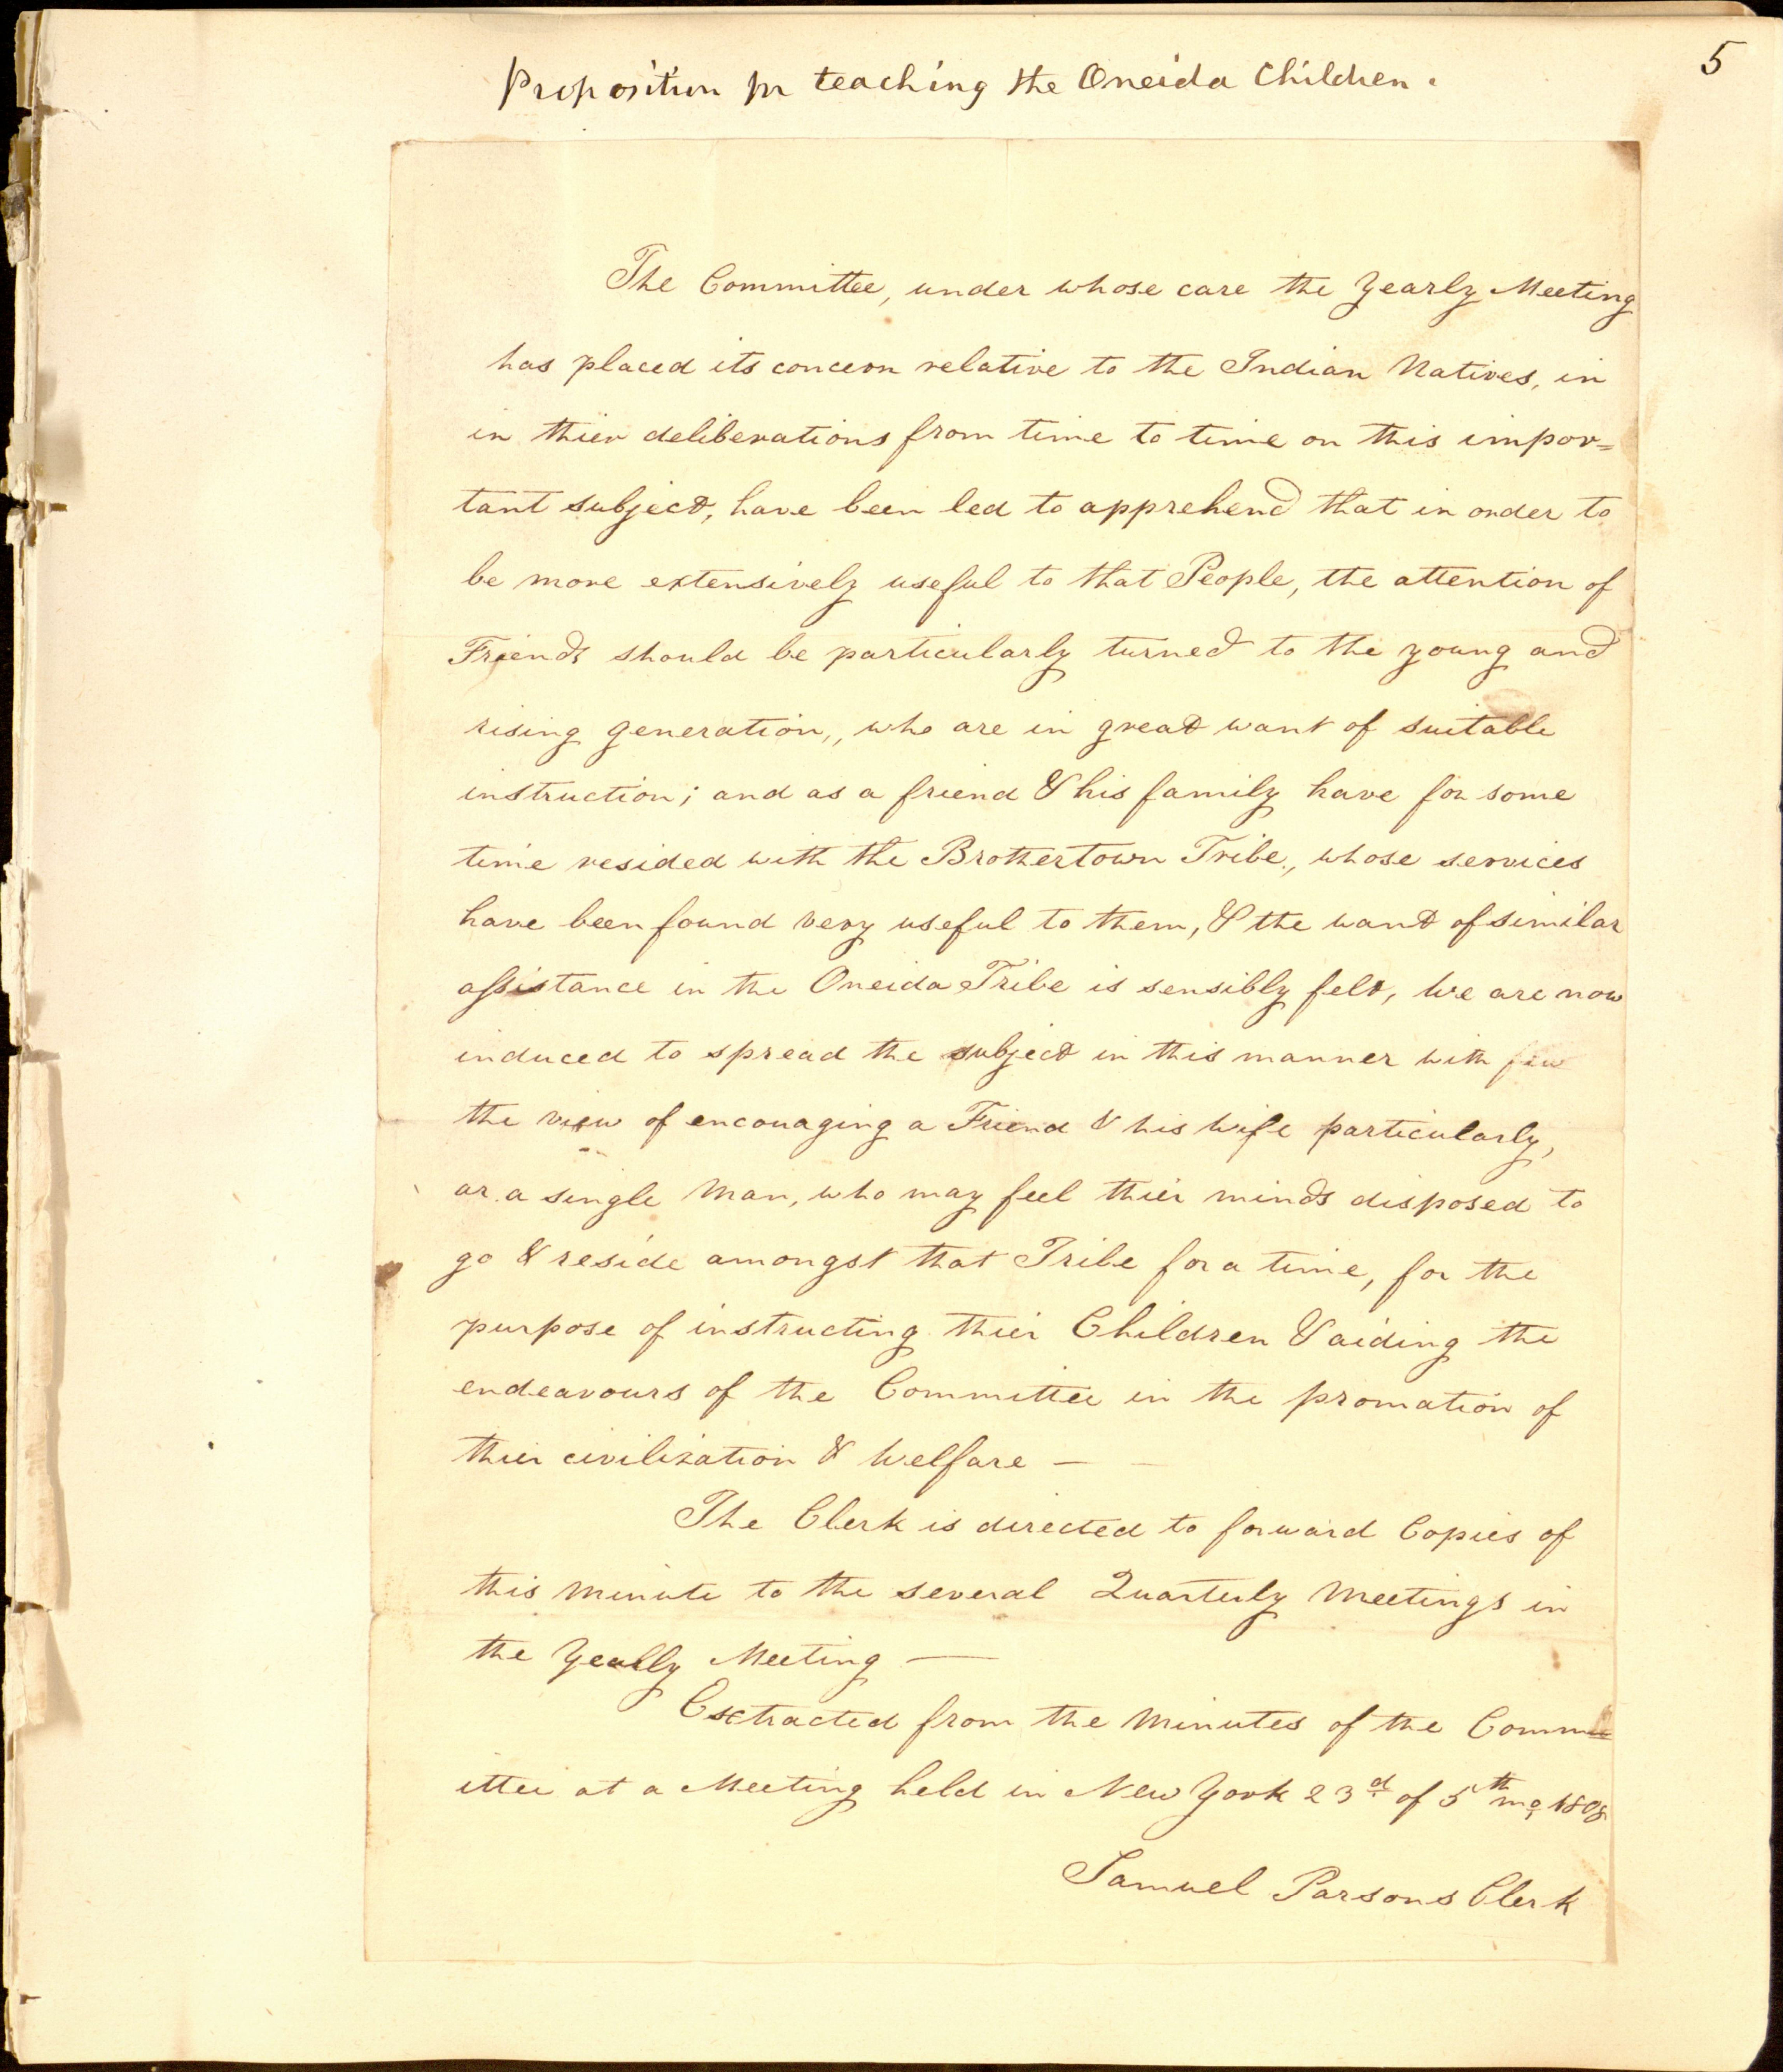 5
Proposition for teaching the Oneida Children.
The Committee, under whose care the Yearly Meeting
has placed its concern relative to the Indian Natives, in
in thier deliberations from time to time on this impor=
tant subject, have been led to apprehend that in order to
be more extensively useful to that People, the attention of
Friends should be particularly turned to the young and
rising generation, who are in great want of suitable
instruction; and as a friend & his family have for some
time resided with the Brothertown Tribe, whose services
have been found very useful to them, & the want of similar
assistance in the Oneida Tribe is sensibly felt, We are now
induced to spread the subject in this manner with
the view of encouraging a Friend & his wife particularly,
or a single Man, who may feel thier minds disposed to
go & reside amongst that Tribe for a time, for the
purpose of instructing thier Children & aiding the
endeavours of the Committee in the promation of
thier civilization & Welfare —
The Clerk is directed to forward Copies of
this Minute to the several Quarterly Meetings in
the Yearly Meeting —
Extracted from the Minutes of the Comm
ittee at a Meeting held in New York 23d of 5th mo, 1808
Samuel Parsons Clerk